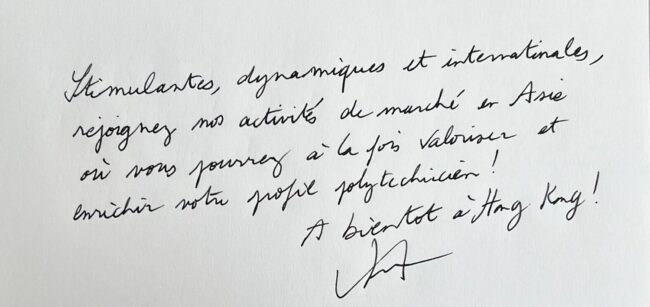 Stimulantes, dynamiques et internatinales,
rejoignez nos activités de marché en Asie
où vous pourrez à la fois valoriser et
enrichir votre profil polytechnicien !
A bientot à Hong Kong !